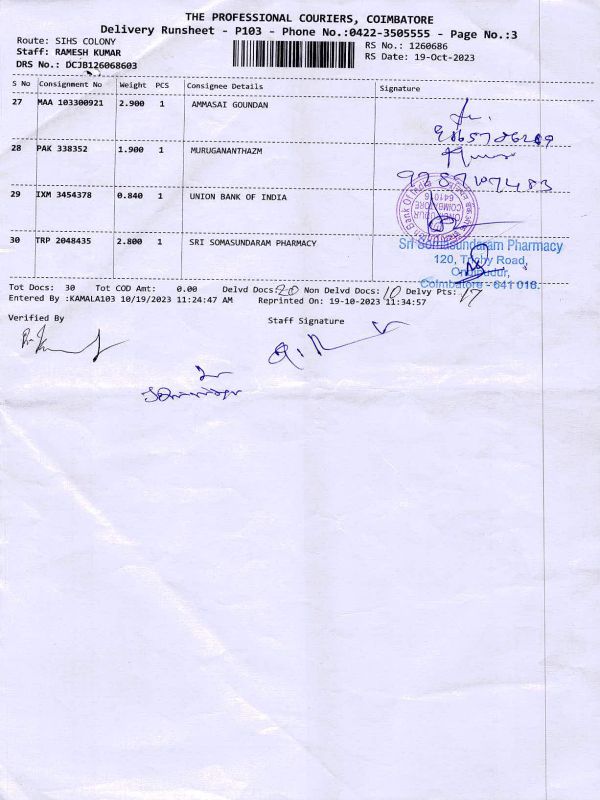 THE PROFESSIONAL COURIERS, COIMBATORE
Delivery Runsheet - P103 - Phone No.:0422-3505555 - Page No.:3
Route: SIHS COLONY
RS No.: 1260686
Staff: RAMESH KUMAR
RS Date: 19-Oct-2023
DRS No.: DCJB126068603
S No Consignment No Weight PCS Consignee Details Signature
27 MAA 103300921 2.900 1 AMMASAI GOUNDAN
28 PAK 338352 1.900 1 MURUGANANTHAZM
9789107483
29 IXM 3454378 0.840 1 UNION BANK OF INDIA
Union Bank Of India
COIMBATORE
641016
30 TRP 2048435 2.800 1 SRI SOMASUNDARAM PHARMACY
Sri Somasundaram Pharmacy
120, Trichy Road,
Ondipudur,
Coimbatore - 641 016.
Tot Docs: 30 Tot COD Amt: 0.00 Delvd Docs: 20 Non Delvd Docs: 10 Delvy Pts: 17
Entered By :KAMALA103 10/19/2023 11:24:47 AM Reprinted On: 19-10-2023 11:34:57
Verified By
Staff Signature